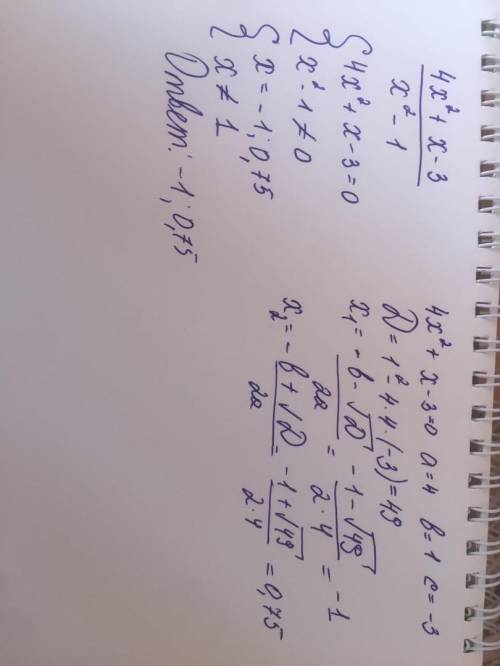 4x² + x - 3
x² - 1
{ 4x² + x - 3 = 0
x² - 1 ≠ 0
{ x = -1; 0,75
x ≠ 1
Ответ: -1; 0,75
4x² + x - 3 = 0 a = 4 b = 1 c = -3
D = 1² - 4·4·(-3) = 49
x₁ = -b - √D / 2a = -1 - √49 / 2·4 = -1
x₂ = -b + √D / 2a = -1 + √49 / 2·4 = 0,75